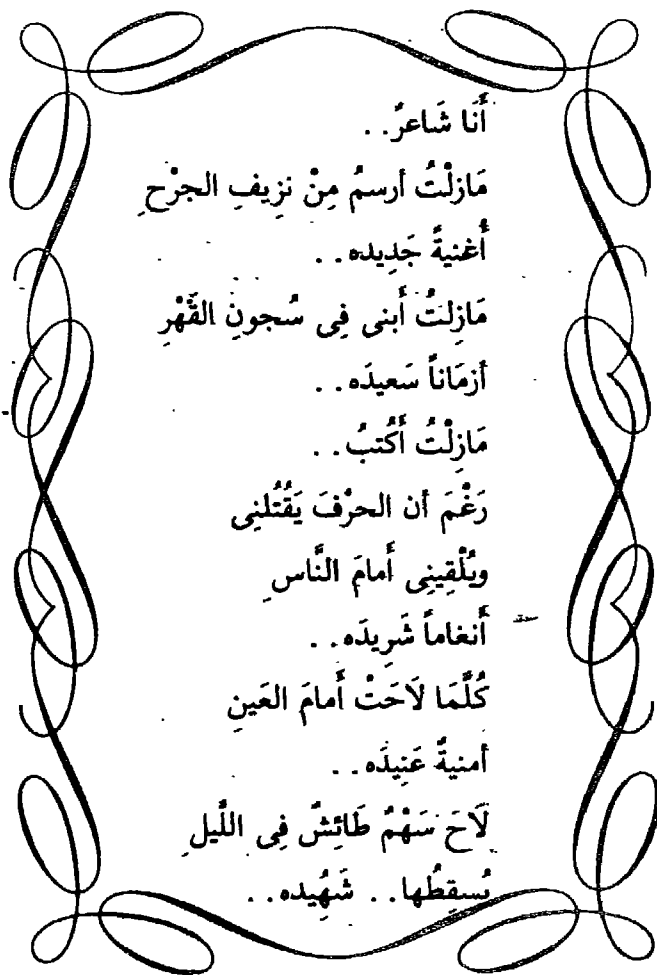 أَنَا شَاعرٌ..
مَازلْتُ أرسمُ مِنْ نزِيفِ الجرْحِ
أُغنيةً جَدِيده..
مَازِلتُ أَبنى فِى سُجونِ القَهْرِ
أزمَاناً سَعيدَه..
مَازِلْتُ أَكُتبُ..
رَغْمَ أن الحرْفَ يَقُتُلنِى
ويُلْقِينِى أَمامَ النَّاسِ
أَنغاماً شَرِيدَه..
كُلَّمَا لَاحَتْ أَمامَ العَينِ
أمنيةٌ عَنِيدَه..
لَاحَ سَهْمٌ طَائِشٌ فِى اللَّيلِ
يُسقِطُها.. شَهُِيده..